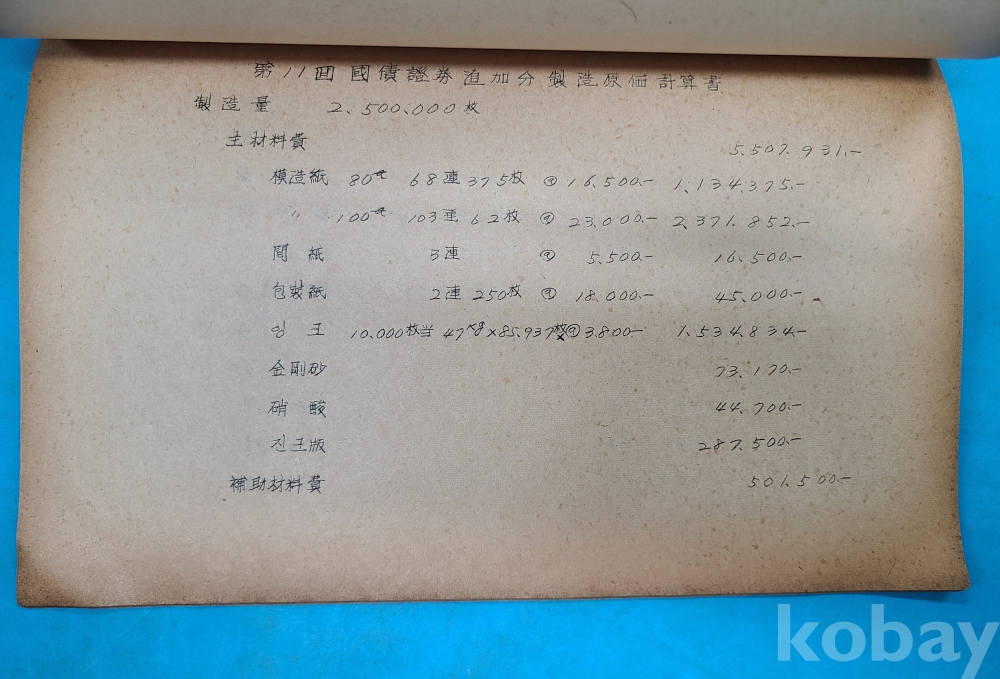 第11回 國債證券追加分 製造原価計算書
製造量 2,500,000枚
主材料費 5,507,931.-
模造紙 80 68連 375枚 @ 16,500.- 1,134,375.-
〃 100 103連 62枚 @ 23,000.- 2,371,852.-
間紙 3連 @ 5,500.- 16,500.-
包裝紙 2連 250枚 @ 18,000.- 45,000.-
잉크 10,000枚当 47 × 85,937枚 @ 3,800.- 1,534,834.-
金剛砂 73,170.-
硝酸 44,700.-
진크版 287,500.-
補助材料費 501,500.-
kobay